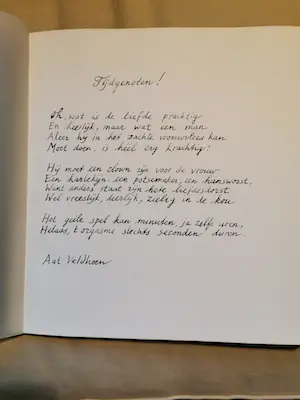 Tijdgenoten!
Oh, wat is de liefde prachtig
En heerlijk, maar wat een man
Aleer hij in het zachte vrouwvlees kan
Moet doen, is heel erg krachtig!
Hij moet een clown zijn voor de vrouw
Een harlekijn, een potsemaker, een hansworst,
Want anders staat zijn hete liefdesdorst
Wel vreeslijk, deerlijk, zielig in de kou
Het geile spel kan minuten, ja zelfs uren,
Helaas, 't orgasme slechts seconden duren.
Aat Veldhoen